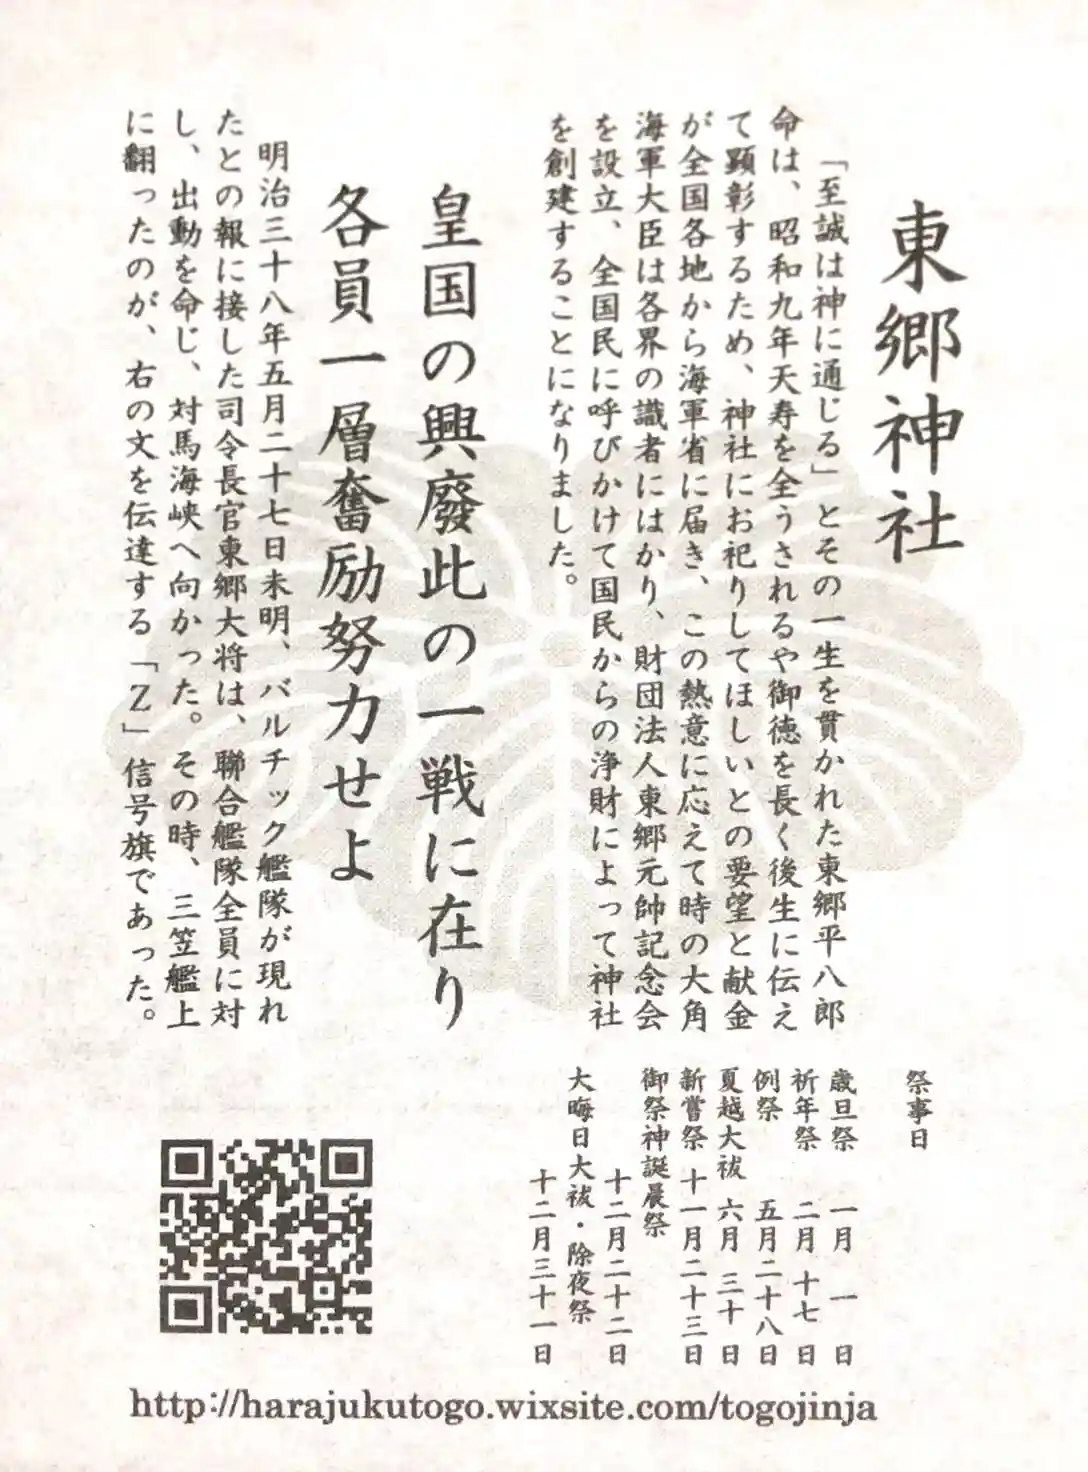 東郷神社
「至誠は神に通じる」とその一生を貫かれた東郷平八郎
命は、昭和九年天寿を全うされるや御徳を長く後生に伝え
て顕彰するため、神社にお祀りしてほしいとの要望と献金
が全国各地から海軍省に届き、この熱意に応えて時の大角
海軍大臣は各界の識者にはかり、財団法人東郷元帥記念会
を設立、全国民に呼びかけて国民からの浄財によって神社
を創建することになりました。
皇国の興廢此の一戦に在り
各員一層奮励努力せよ
明治三十八年五月二十七日未明、バルチック艦隊が現れ
たとの報に接した司令長官東郷大将は、聯合艦隊全員に対
し、出動を命じ、対馬海峡へ向かった。その時、三笠艦上
に翻ったのが、右の文を伝達する「Z」信号旗であった。
祭事日
歳旦祭 一月 一日
祈年祭 二月 十七日
例祭 五月二十八日
夏越大祓 六月 三十日
新嘗祭 十一月二十三日
御祭神誕晨祭
十二月二十二日
大晦日大祓・除夜祭
十二月三十一日
http://harajukutogo.wixsite.com/togojinja